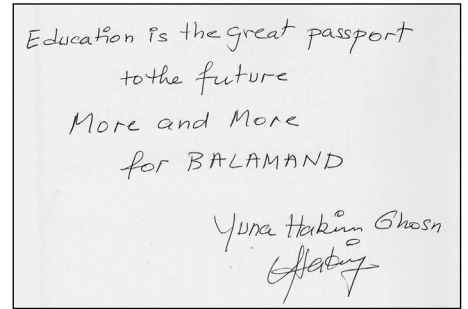 Education is the great passport
to the future
More and More
for BALAMAND
Yuna Hakim Ghosn